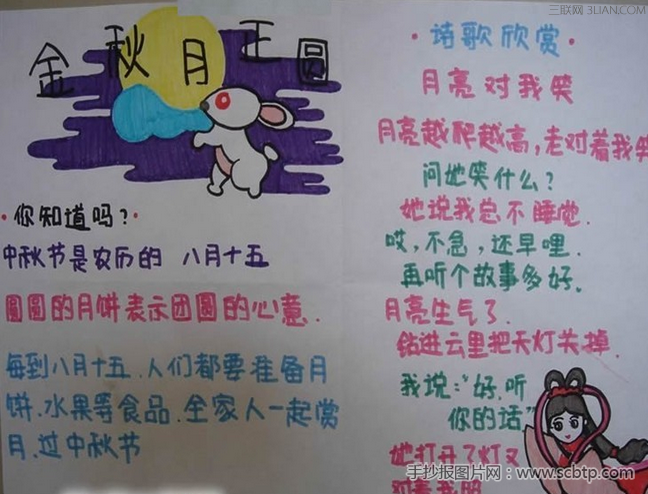 三联网 3LIAN.COM
金秋月正圆
·你知道吗?·
中秋节是农历的 八月十五
圓圓的月饼表示团圓的心意.
每到八月十五.人们都要准备月
饼.水果等食品.全家人一起赏
月.过中秋节
·诗歌欣赏·
月亮对我笑
月亮越爬越高,老对着我笑
问她笑什么?
她说我总不睡觉.
哎,不急,还早哩.
再听个故事多好.
月亮生气了.
钻进云里把天灯关掉.
我说:“好.听
你的话”
她打开了灯又
对着我
手抄报图片网:www.scbtp.com